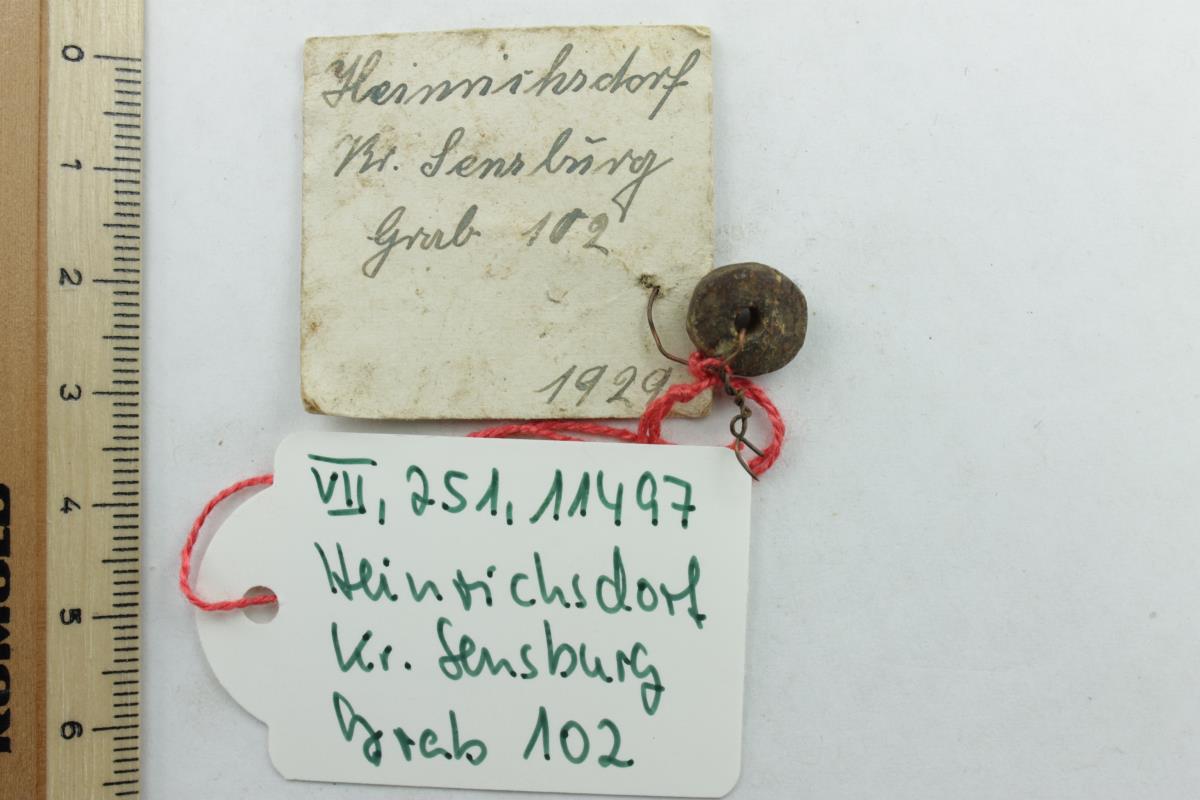 Heinrichsdorf
Kr. Sensburg
Grab 102
1929
VII, 251, 11497
Heinrichsdorf
Kr. Sensburg
Grab 102
0
1
2
3
4
5
6